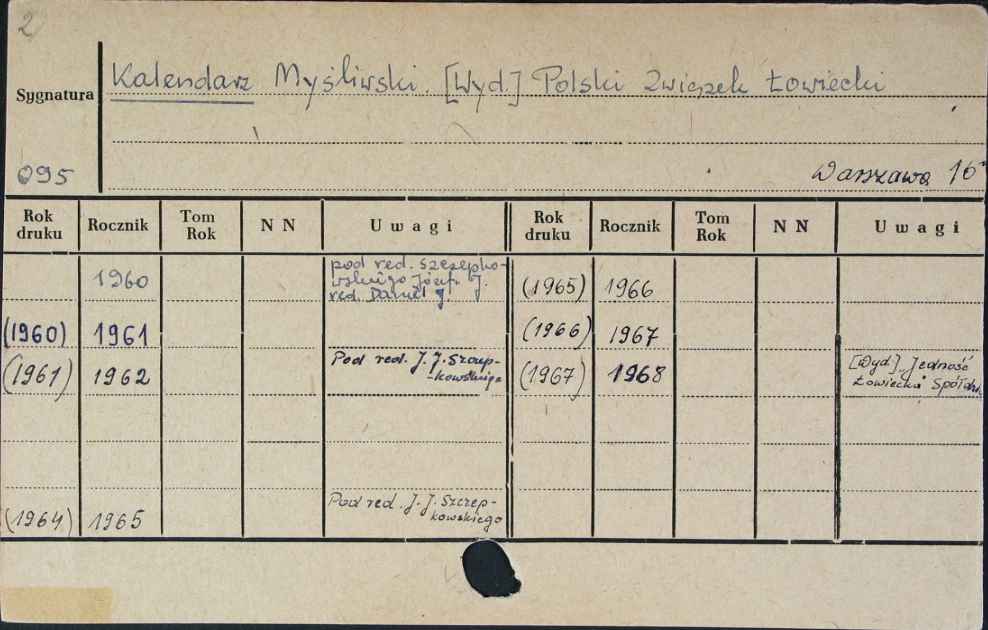 2
Kalendarz Myśliwski. [Wyd.] Polski Związek Łowiecki
Sygnatura
095
Warszawa 16°
Rok druku Rocznik Tom Rok N N Uwagi Rok druku Rocznik Tom Rok N N Uwagi
1960 pod red. Szczepko-
wskiego Józef. J.
red. Daniel J.
(1965) 1966
(1960) 1961 (1966) 1967
(1961) 1962 Pod red. J. J. Szczep-
-kowskiego
(1967) 1968 [Wyd.] „Jedność
Łowiecka" Spółdz.
(1964) 1965 Pod red. J. J. Szczep-
kowskiego